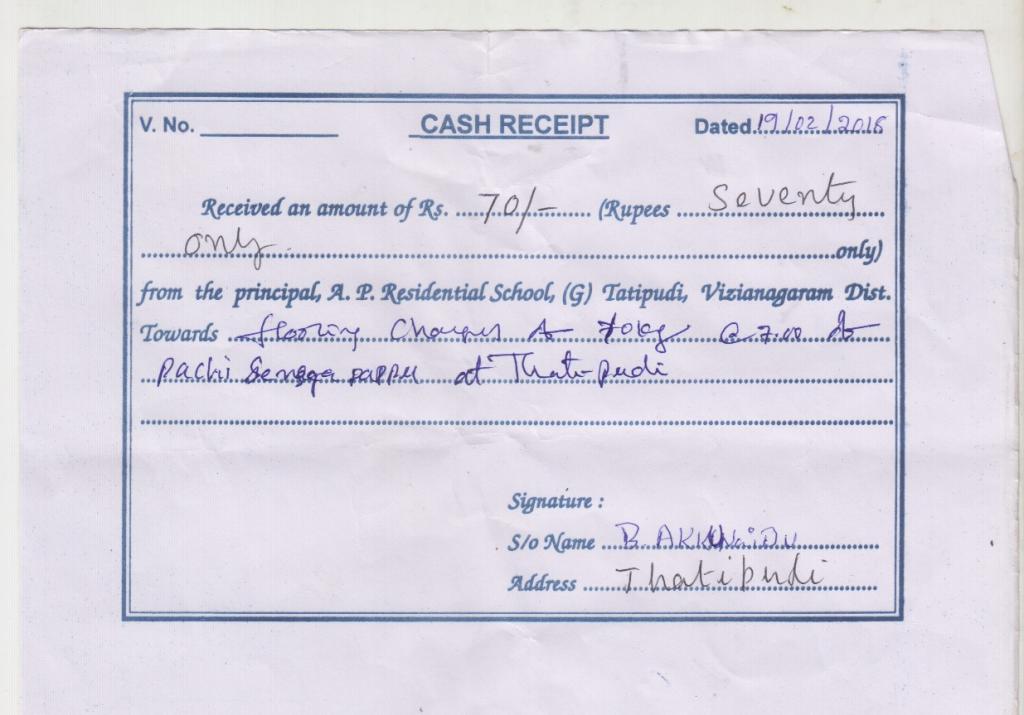 V. No. CASH RECEIPT Dated 19/02/2016
Received an amount of Rs. 70/- (Rupees Seventy
only only)
from the principal, A. P. Residential School, (G) Tatipudi, Vizianagaram Dist.
Towards Charges @ 7.00
pachi Senaga pappu at Thatipudi
Signature :
S/o Name B. AKKUNAIDU
Address Thatipudi